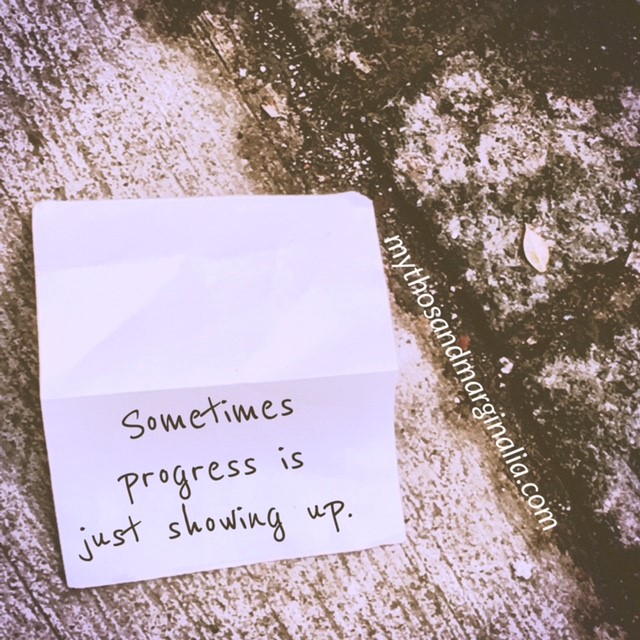 Sometimes
progress is
just showing up.
mythosandmarginalia.com